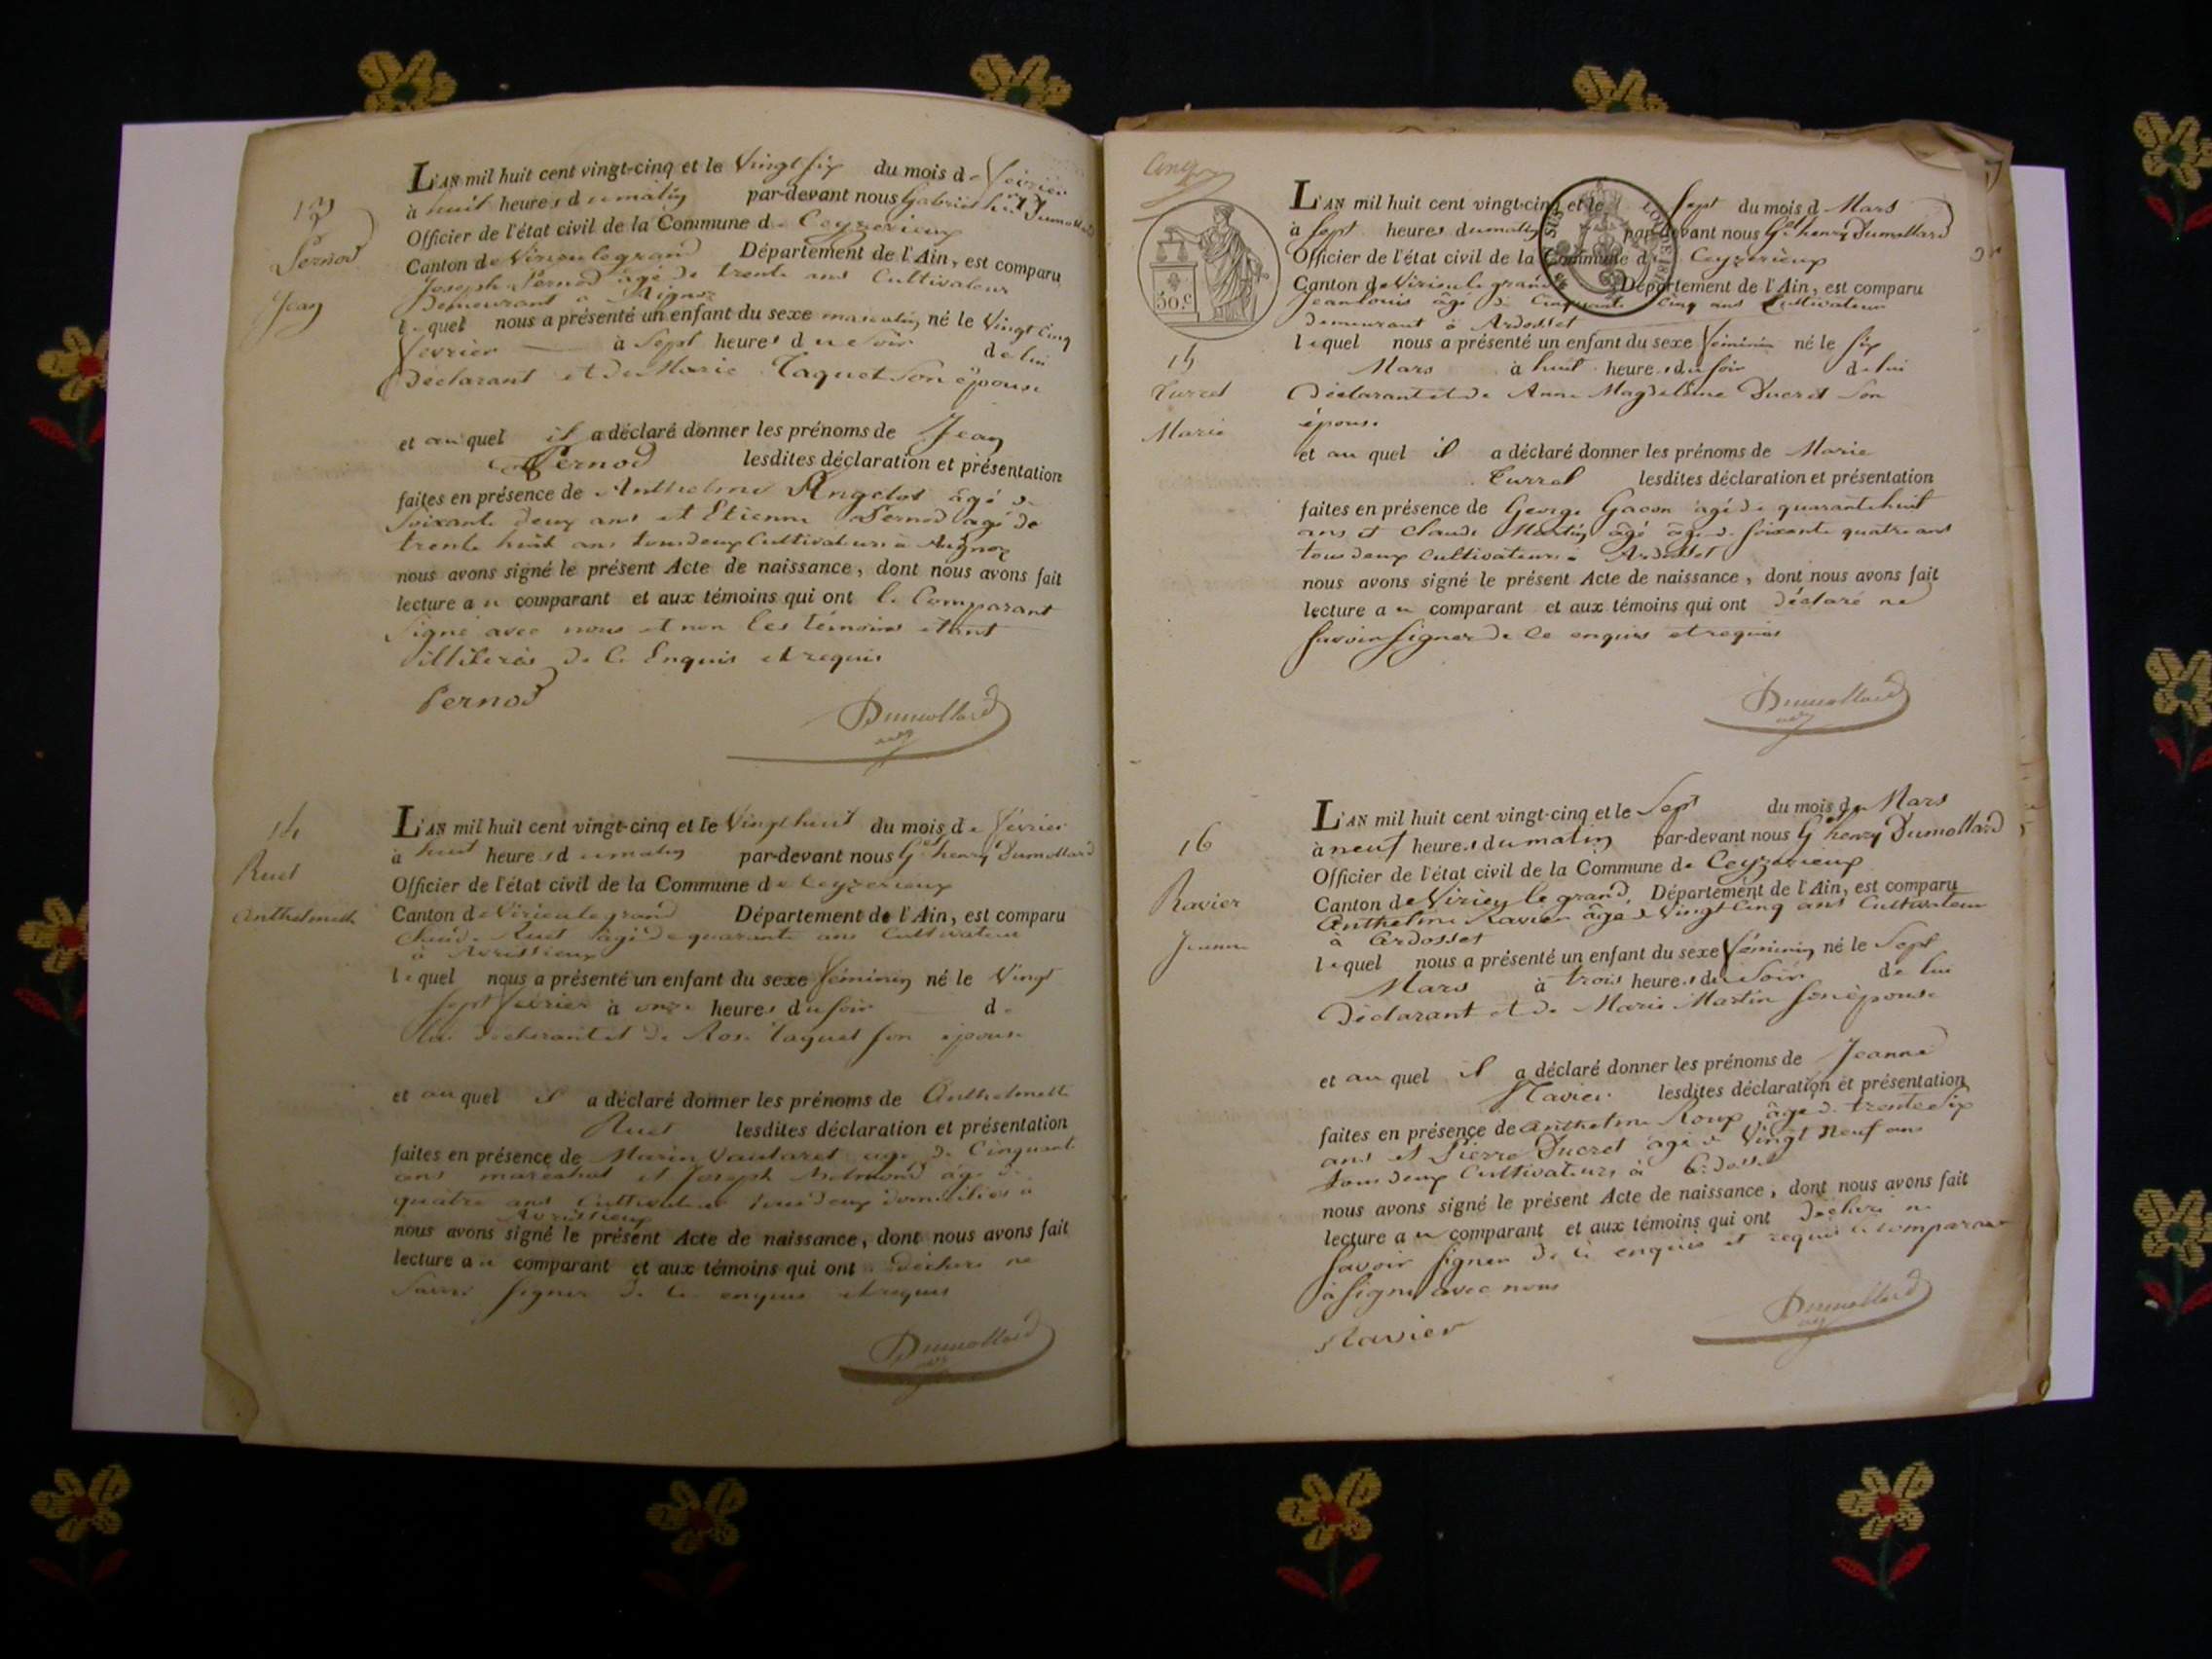 13
Pernod
Jean
L'AN mil huit cent vingt-cinq et le Vingt six du mois de fevrier
à huit heures du matin par-devant nous Gabriel henry Dumollard
Officier de l'état civil de la Commune de Ceyzerieux
Canton de Virieu le grand Département de l'Ain, est comparu
Joseph Pernod âgé de trente ans Cultivateur
Demeurant à Aignoz
lequel nous a présenté un enfant du sexe masculin né le Vingt Cinq
fevrier à Sept heures du Soir de lui
Déclarant et de Marie Taquet Son épouse
et auquel il a déclaré donner les prénoms de Jean
Pernod lesdites déclaration et présentation
faites en présence de Anthelme Angelot âgé de
Soixante deux ans et Etienne Pernod âgé de
trente huit ans tous deux Cultivateurs à Aignoz
nous avons signé le présent Acte de naissance, dont nous avons fait
lecture au comparant et aux témoins qui ont le Comparant
Signé avec nous et non les témoins étant
illiterés de ce Enquis et requis
Pernod
Dumollard
14
Ruet
Anthelmette
L'AN mil huit cent vingt-cinq et le Vingt huit du mois de fevrier
à huit heures du matin par-devant nous Gel henry Dumollard
Officier de l'état civil de la Commune de Ceyzerieux
Canton de Virieu le grand Département de l'Ain, est comparu
Claude Ruet âgé de quarante ans Cultivateur
à Avrissieux
lequel nous a présenté un enfant du sexe féminin né le Vingt
Sept fevrier à onze heures du soir de
lui déclarant et de Rose Taquet son épouse
et auquel il a déclaré donner les prénoms de Anthelmette
Ruet lesdites déclaration et présentation
faites en présence de Marin Vautaret âgé de Cinquante
ans maréchal et Joseph âgé de
quatre ans Cultivateur tous deux domiciliés à
Avrissieux
nous avons signé le présent Acte de naissance, dont nous avons fait
lecture au comparant et aux témoins qui ont déclaré ne
Savoir signer de ce enquis et requis
Dumollard
Cinq
30.c
LOI DE 1816
15
Turrel
Marie
L'AN mil huit cent vingt-cinq et le Sept du mois d Mars
à Sept heures du matin par-devant nous Gel henry Dumollard
Officier de l'état civil de la Commune de Ceyzerieux
Canton de Virieu le grand Département de l'Ain, est comparu
Jean louis âgé de Cinquante Cinq ans Cultivateur
demeurant à Ardosset
lequel nous a présenté un enfant du sexe féminin né le six
Mars à huit heures du soir de lui
Déclarant et de Anne Magdeleine Ducret Son
épouse
et au quel il a déclaré donner les prénoms de Marie
Turrel lesdites déclaration et présentation
faites en présence de George Gacon âgé de quarante huit
ans et Claude Martin âgé âgé de soixante quatre ans
tous deux cultivateurs à Ardosset
nous avons signé le présent Acte de naissance, dont nous avons fait
lecture au comparant et aux témoins qui ont déclaré ne
savoir signer de ce enquis et requis
Dumollard
16
Ravier
Jeanne
L'AN mil huit cent vingt-cinq et le Sept du mois de Mars
à neuf heures du matin par-devant nous Gel henry Dumollard
Officier de l'état civil de la Commune de Ceyzerieux
Canton de Virieu le grand, Département de l'Ain, est comparu
Anthelme Ravier âgé de Vingt Cinq ans Cultivateur
à Ardosset
lequel nous a présenté un enfant du sexe féminin né le Sept
Mars à trois heures du Soir de lui
Déclarant et de Marie Martin son épouse
et au quel il a déclaré donner les prénoms de Jeanne
Ravier lesdites déclaration et présentation
faites en présence de Anthelme Roux âgé de trente six
ans et Pierre Ducret âgé de Vingt Neuf ans
tous deux Cultivateurs à Ardosset
nous avons signé le présent Acte de naissance, dont nous avons fait
lecture au comparant et aux témoins qui ont déclaré ne
savoir signer de ce enquis et requis le comparant
à signé avec nous
Ravier
Dumollard